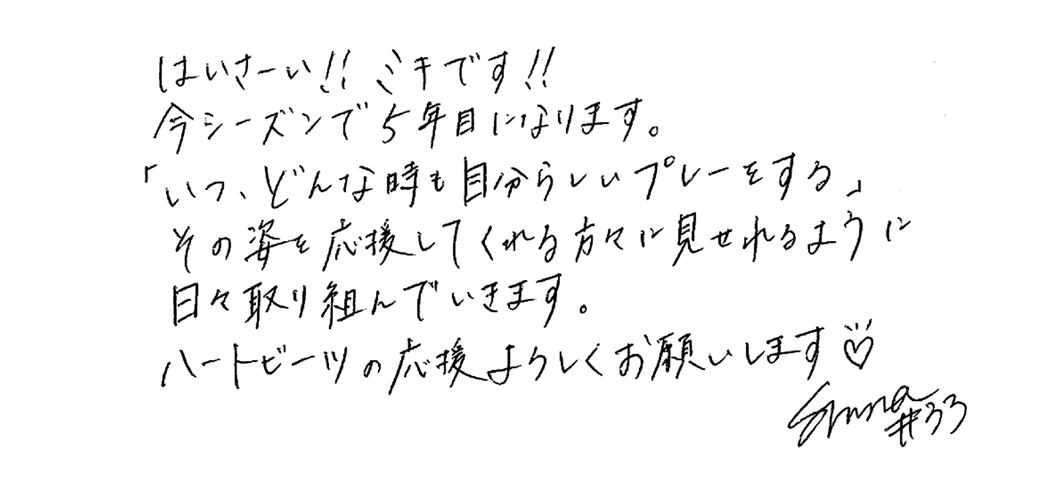 はいさーい!! ミキです!!
今シーズンで5年目になります。
「いつ、どんな時も自分らしいプレーをする」
その姿を応援してくれる方々に見せれるように
日々取り組んでいきます。
ハートビーツの応援よろしくお願いします♡
#33